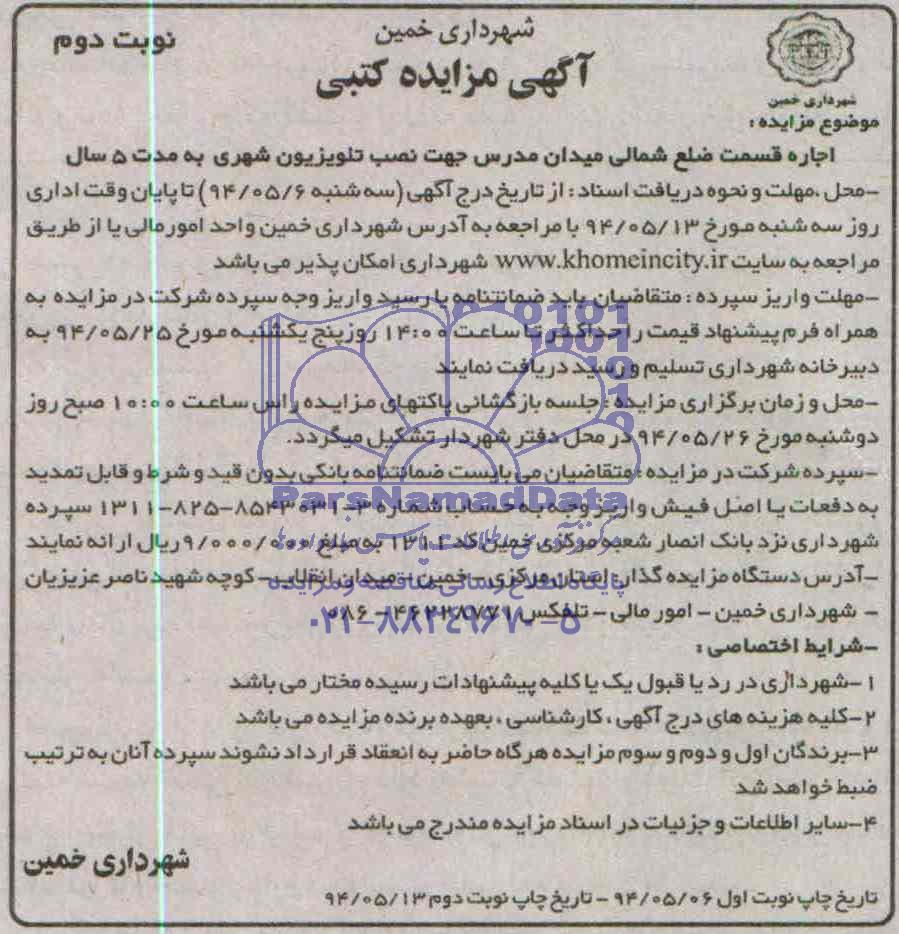 شهرداری خمین
نوبت دوم
آگهی مزایده کتبی
شهرداری خمین
موضوع مزایده :
اجاره قسمت ضلع شمالی میدان مدرس جهت نصب تلویزیون شهری به مدت ۵ سال
-محل ،مهلت و نحوه دریافت اسناد : از تاریخ درج آگهی (سه شنبه ۹۴/۰۵/۶) تا پایان وقت اداری
روز سه شنبه مورخ ۹۴/۰۵/۱۳ با مراجعه به آدرس شهرداری خمین واحد امورمالی یا از طریق
مراجعه به سایت www.khomeincity.ir شهرداری امکان پذیر می باشد
-مهلت واریز سپرده : متقاضیان باید ضمانتنامه یا رسید واریز وجه سپرده شرکت در مزایده به
همراه فرم پیشنهاد قیمت را حداکثر تا ساعت ۱۴:۰۰ روز پنج یکشنبه مورخ ۹۴/۰۵/۲۵ به
دبیرخانه شهرداری تسلیم و رسید دریافت نمایند
-محل و زمان برگزاری مزایده : جلسه بازگشائی پاکتهای مزایده راس ساعت ۱۰:۰۰ صبح روز
دوشنبه مورخ ۹۴/۰۵/۲۶ در محل دفتر شهردار تشکیل میگردد.
-سپرده شرکت در مزایده : متقاضیان می بایست ضمانتنامه بانکی بدون قید و شرط و قابل تمدید
ParsNamadData
به دفعات یا اصل فیش واریز وجه به حساب شماره ۳-۸۵۴۳۰۳۱-۸۲۵-۱۳۱۱ سپرده
شهرداری نزد بانک انصار شعبه مرکزی خمین کد ۱۳۱۱ به مبلغ ۹/۰۰۰/۰۰۰ ریال ارائه نمایند
-آدرس دستگاه مزایده گذار: استان مرکزی – خمین – میدان انقلاب – کوچه شهید ناصر عزیزیان
پایگاه اطلاع رسانی مناقصه و مزایده
- شهرداری خمین – امور مالی – تلفکس ۴۶۲۲۸۷۷۱-۰۸۶
۰۲۱-۸۸۳۴۹۶۷۰-۵
-شرایط اختصاصی :
۱-شهرداری در رد یا قبول یک یا کلیه پیشنهادات رسیده مختار می باشد
۲-کلیه هزینه های درج آگهی ، کارشناسی ، بعهده برنده مزایده می باشد
۳-برندگان اول و دوم و سوم مزایده هرگاه حاضر به انعقاد قرارداد نشوند سپرده آنان به ترتیب
ضبط خواهد شد
۴-سایر اطلاعات و جزئیات در اسناد مزایده مندرج می باشد
شهرداری خمین
تاریخ چاپ نوبت اول ۹۴/۰۵/۰۶ – تاریخ چاپ نوبت دوم ۹۴/۰۵/۱۳